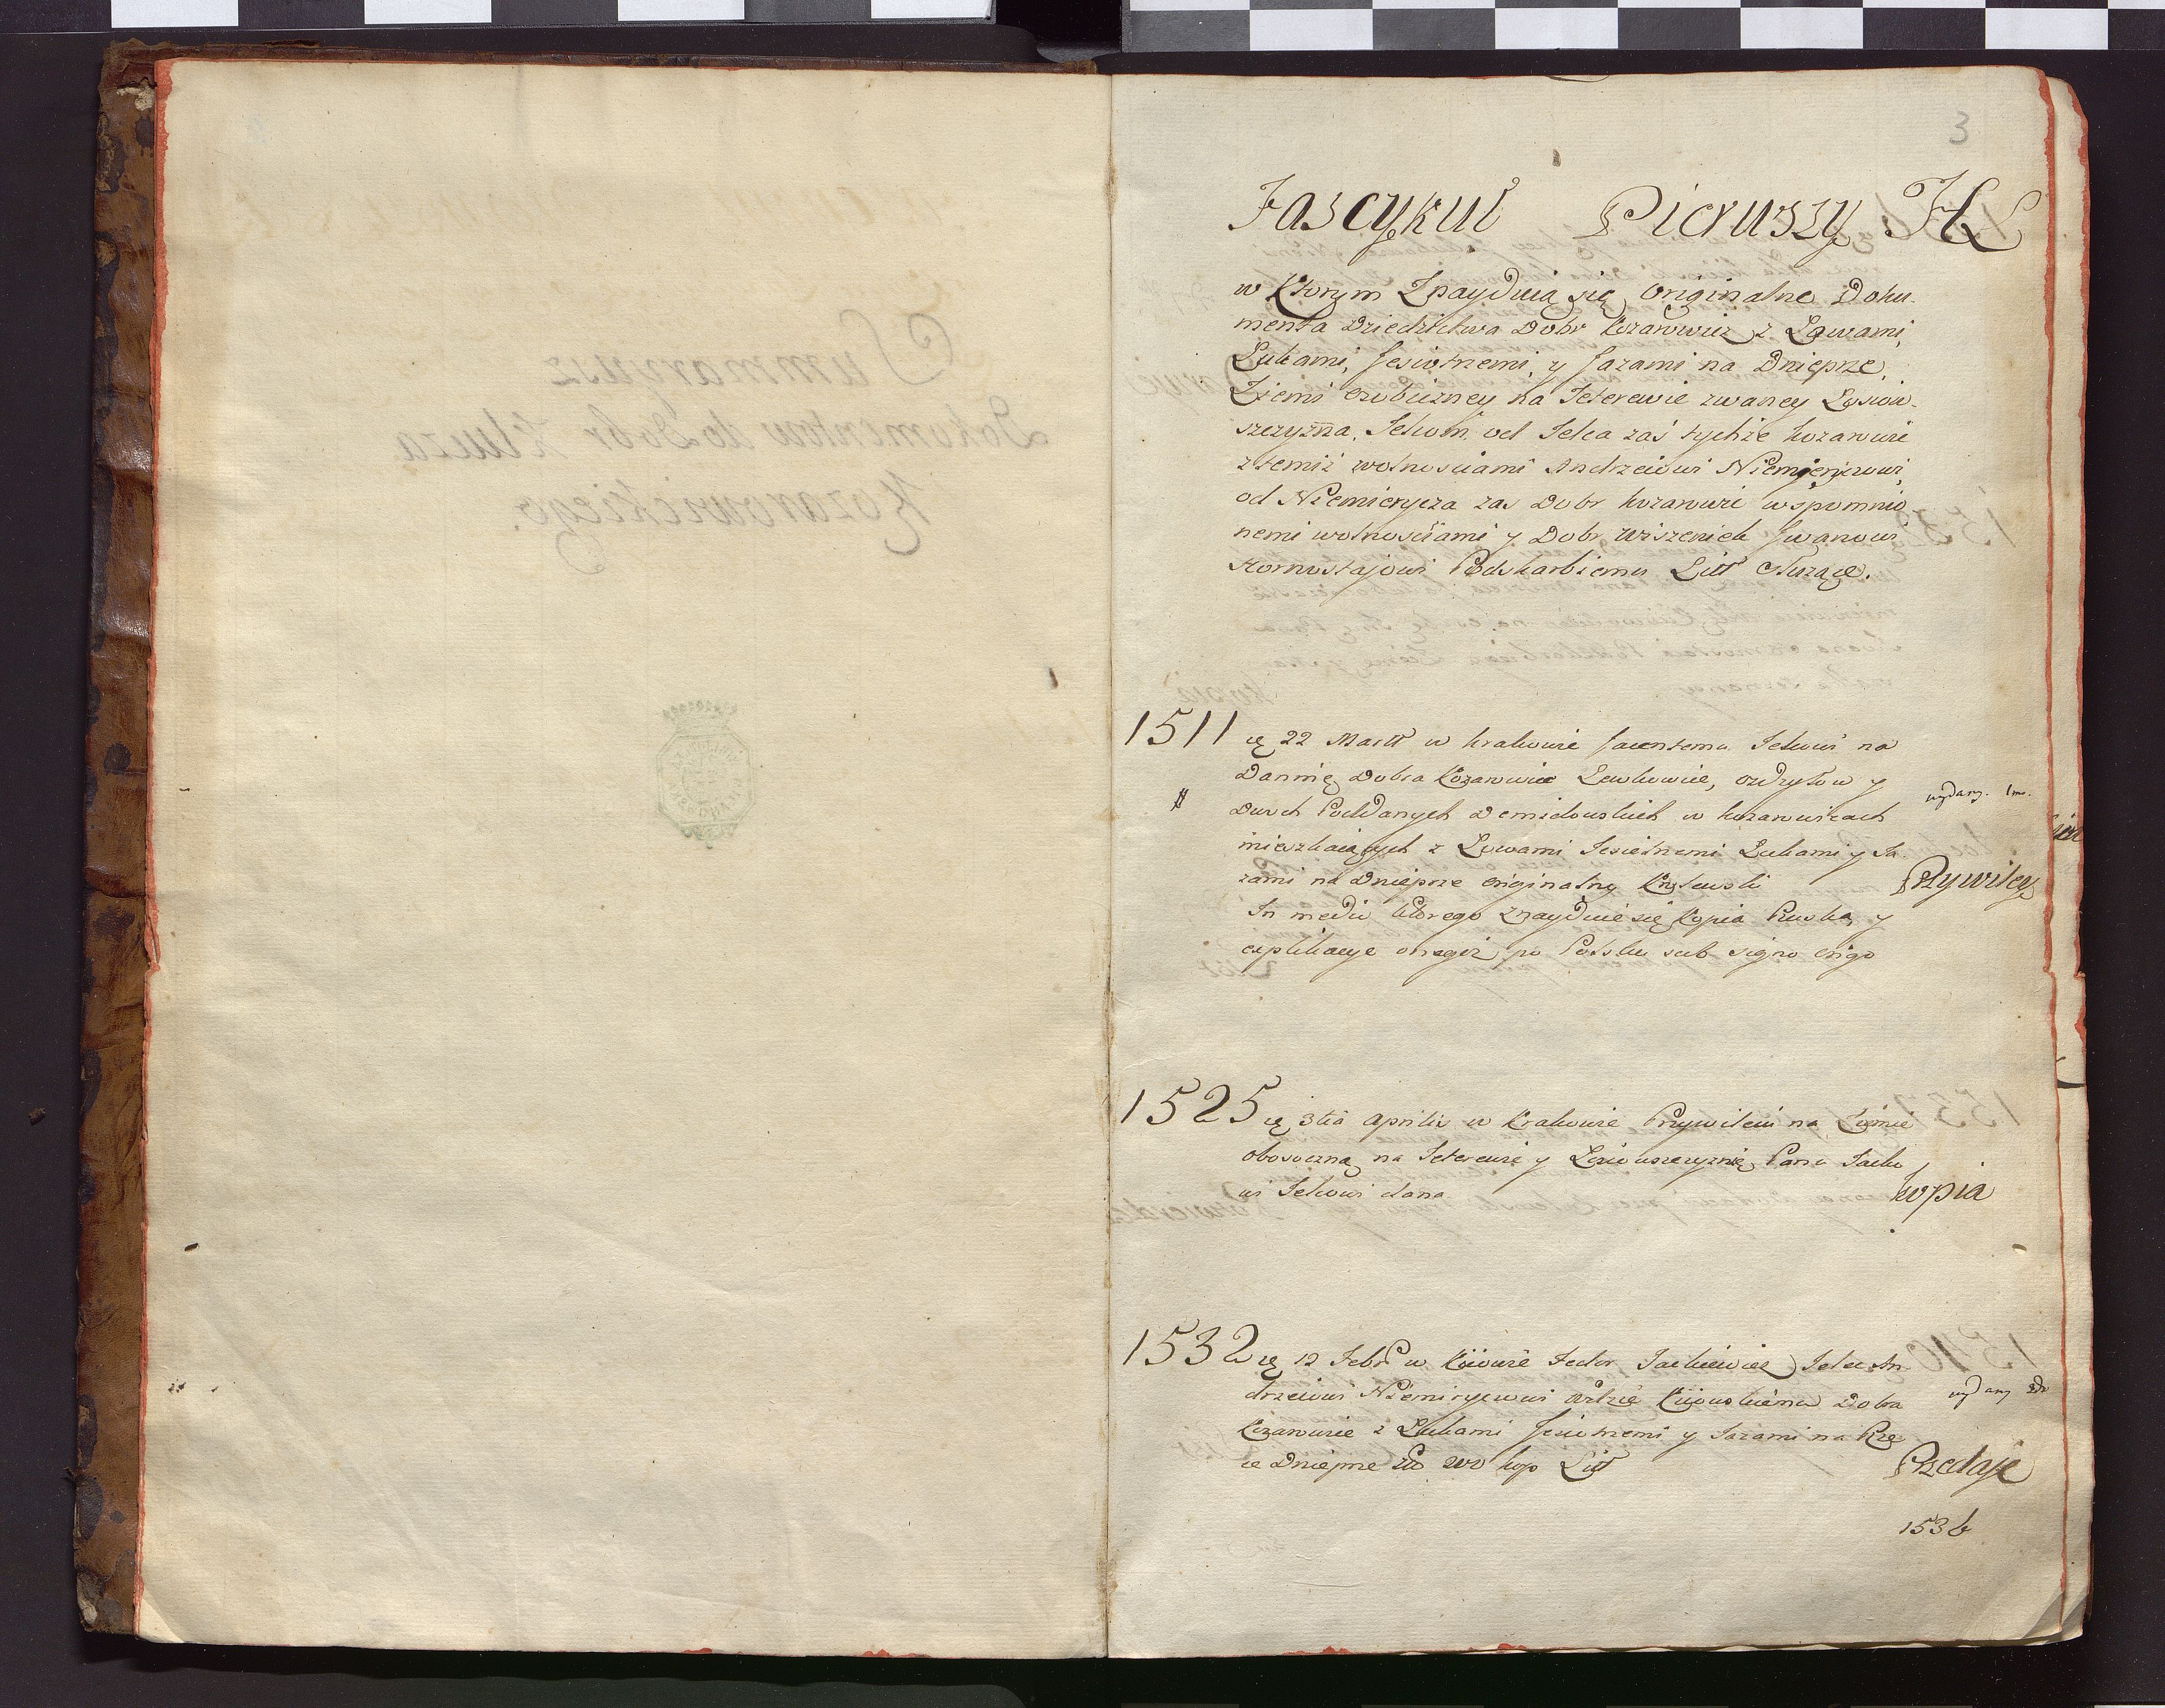 3
Fascykuł Pierwszy
w Ktorym Znayduią się originalne Doku-
menta Dziedzictwa Dobr Kozarowicz z Łowami,
Łukami, Jesiotrnemi, y Jazami na Dnieprze,
Ziemi na Teterewie zwaney Łosiow-
szczyzna, Jelcom, od Jelca zaś tychże kozarowic
z temiż wolnosciami Andrzeiowi Niemierzowi,
od Niemierycza zas Dobr kozarowic wspomnio
nemi wolnosciami y Dobr Wiszeniek Jwanowi
Hornostajowi Podskarbiemu Litt służące.
1511 ę 22 Martii w krakowie Jacentemu Jelcowi na
Dannię Dobra Kozarowice Lewkowice, y
Dwuch Poddanych Demidowskich w kozarowicach
mieszkaiących z Łowami Jesietrnemi Łukami y Ja
zami na Dnieprze originalny Krolewski
Przywiley
wydany. 1mo.
In medio ktorego znayduie się Kopia Ruska y
explikacye onegoż po Polsku sub signo
1525 ę 3tia Aprilis w Krakowie Przywileiu na Ziemie
oboioczną na Teterewie y Łosiowszczyznię Panu Jacko
wi Jelcowi dana
kopia
1532 ę 12 Febr w Kiiowie Fedor Jackiewicz Jelec An
drzeiowi Niemiryczowi Kiiowskiemu Dobra
Kozarowice z Łukami Jesietrnemi y Jazami na Rze
ce Dnieprze za 200 kop Litt
wydany 2do
Przedaje
1536